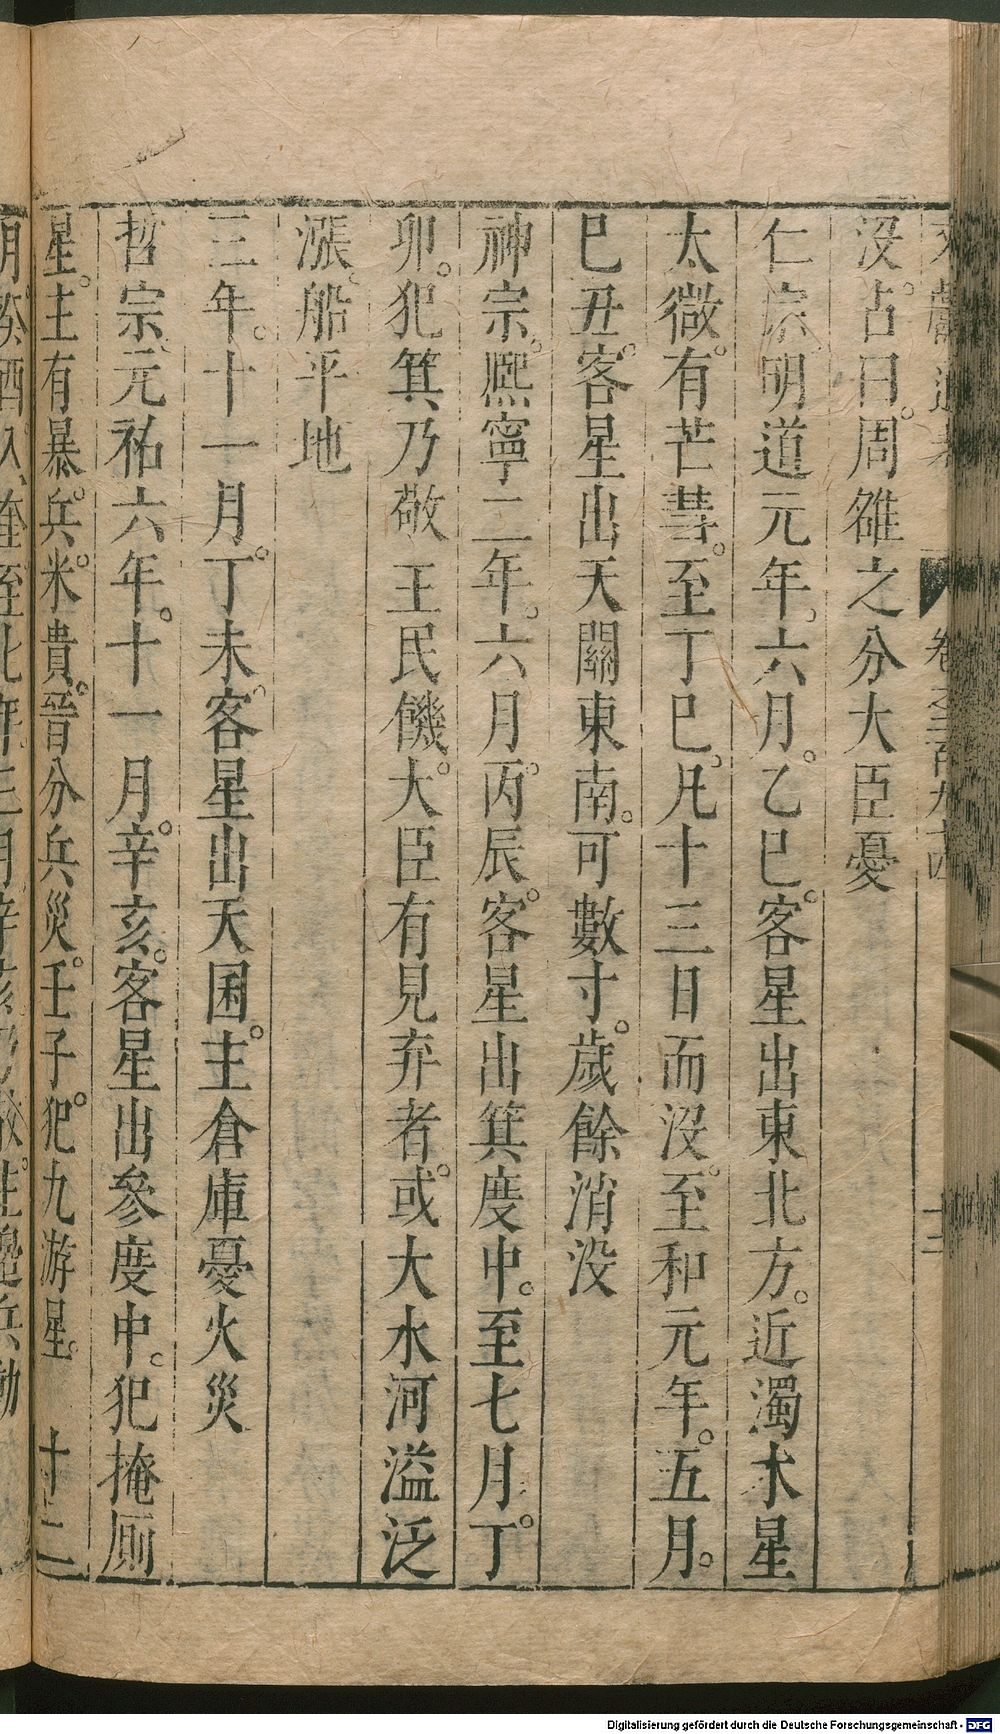 文獻通考 卷之二百九十四 十二
沒占曰周雒之分大臣憂
仁宗明道元年六月乙巳客星出東北方近濁木星
太微有芒彗至丁巳凡十三日而沒至和元年五月
巳丑客星出天關東南可數寸歲餘消沒
神宗熈寧二年六月丙辰客星出箕度中至七月丁
卯犯箕乃敬 王民饑大臣有見弃者或大水河溢泛
漲船平地
三年十一月丁未客星出天囷主倉庫憂火災
哲宗元祐六年十一月辛亥客星出參度中犯掩厠
星主有暴兵米貴晉分兵災壬子犯九游星 十二
月癸酉入奎至七年三月辛亥乃散主邊兵動
Digitalisierung gefördert durch die Deutsche Forschungsgemeinschaft - DFG